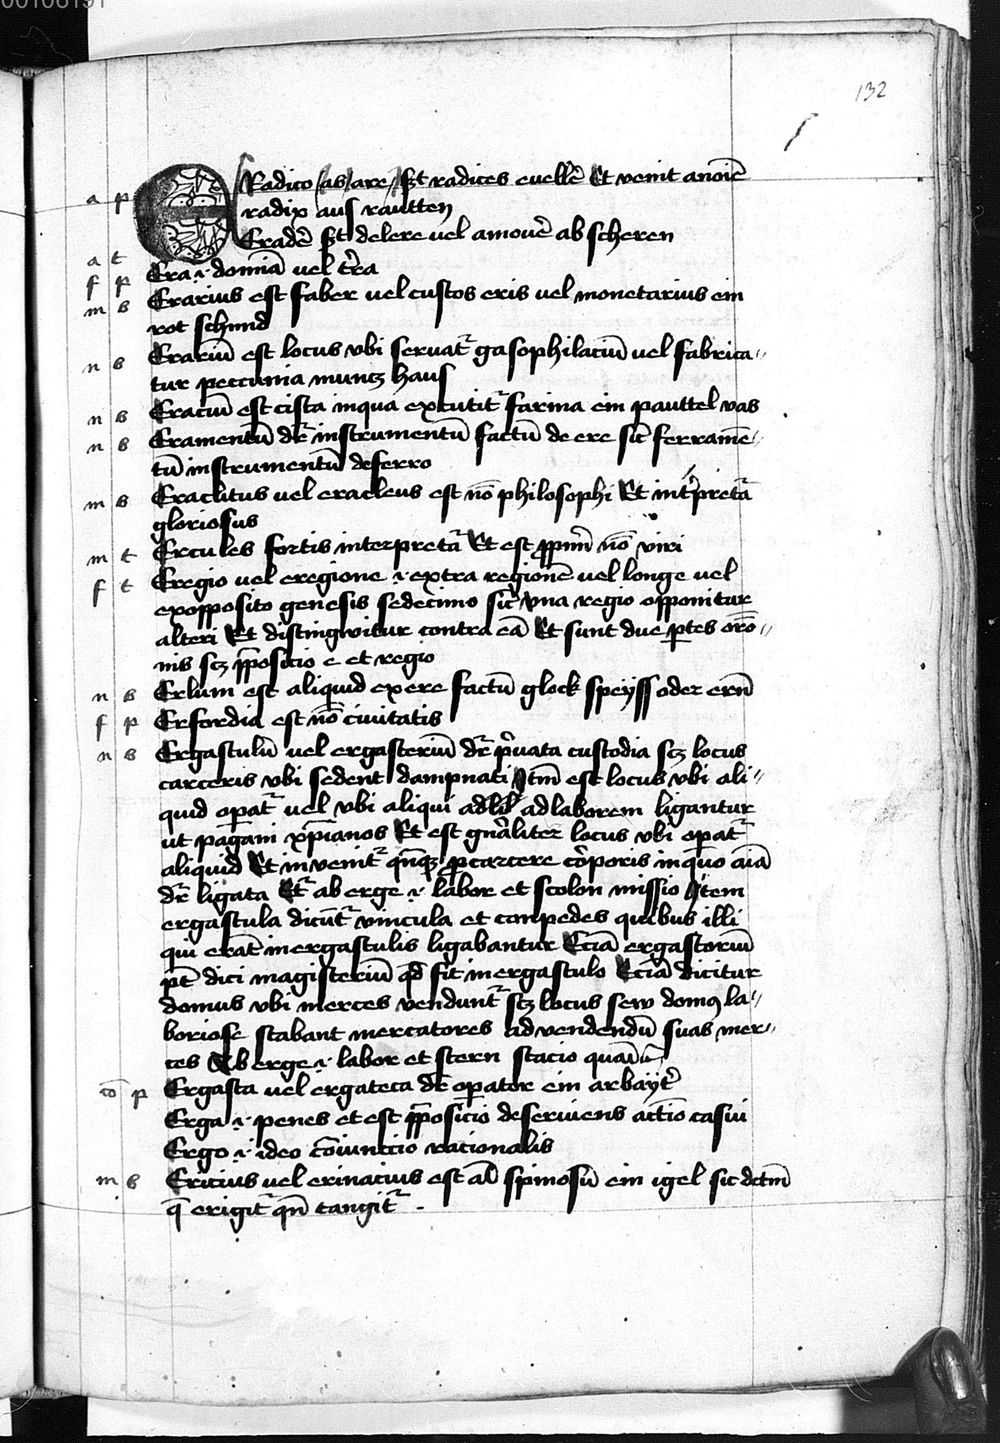 00106191
132
a p ERadico as are Est radices euellē Et venit anoīe
radix aus rautten
a t Eradē Est delere uel amouē ab scheren
f p Era .i. domīa vel tr̄ra
m s Erarius est faber uel custos eris uel monetarius ein
rot schmid
n s Erariū est locus vbi seruat᷑ gasophilaciū uel fabrica„
tur peccunia muntz haus
n s Eraciū est cista inqua excutit᷑ farina ein pauttel vas
n s Eramentū dr̄ instrumentū factū de ere sic̄ ferramē„
tū instrumentū deferro
m s Eraclitus uel eracleus est nō philosophi Et int̄pretā
gloriosus
m t Ercules fortis interpretā Et est ꝓpriū nō viri
f t Eregio uel eregione .i. extra regionē uel longe uel
exopposito genesis sedecimo sic̄ vna regio opponitur
alteri Et distingwitur contra eā Et sunt due ꝑtes orō„
nis scȝ p̄posicio e et regio
n s Erlum est aliquid ex ere factū glock speyss oder ern̄
f p Erfordia est nō ciuitatis
n s Ergastulū uel ergasteriū dr̄ p̄uata custodia scȝ locus
carceris vbi sedent dampnati Itm̄ est locus vbi ali„
quid opat᷑ uel vbi aliqui adlaborem ligantur
ut pagani xp̄ianos Et est gnāliter locus vbi opat᷑
aliquid Et inuenit᷑ qn̄qȝ ꝓcarcere cōrporis inquo aīa
dr̄ ligata Et᷑ ab erge .i. labor et scolon missio Item
ergastula dicūt᷑ vincula et conpedes quibus illi
qui erāt inergastulis ligabantur Eciā ergastoriū
pt̄ dici magisteriū qd̄ fit inergastulo Eciā dicitur
domus vbi merces vendunt᷑ scȝ locus sew domꝰ la„
boriose stabant mercatores ad vendendū suas mer„
ces Ab erge .i. labor et stern stacio
cō p Ergasta uel ergateca dr̄ opator ein arbayt᷑
Erga .i. penes et est p̄posicio deseruiens actīo casui
Ergo .i. ideo cōiunccio racionalis
m s Ericius uel erinacius est aīal spinosū ein igel sic dctm̄
q̄ erigit᷑ qn̄ tangit᷑ .